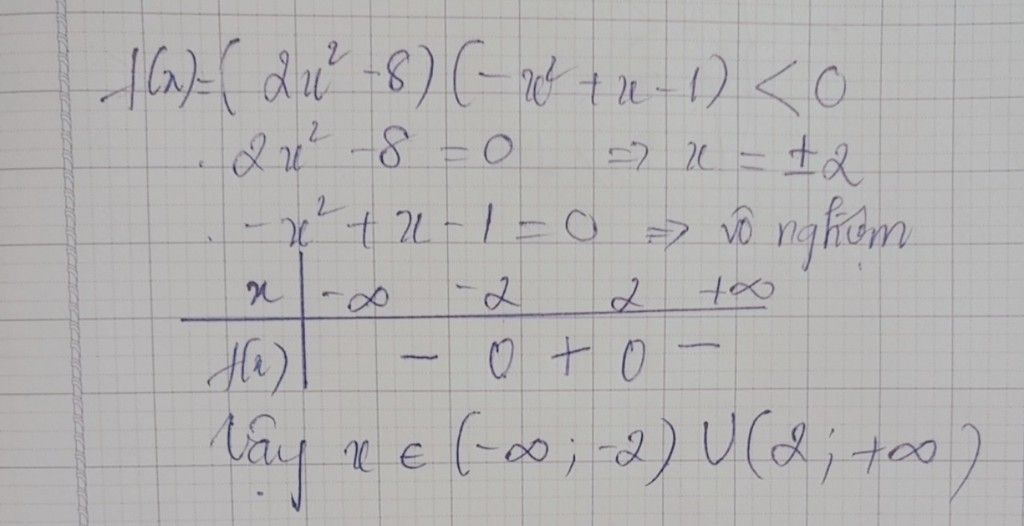 f(x)=(2x²-8)(-x²+x-1)<0
. 2x²-8=0 => x=±2
. -x²+x-1=0 => vô nghiệm
x -∞ -2 2 +∞
f(x) - 0 + 0 -
Vậy x ∈ (-∞;-2) U (2;+∞)